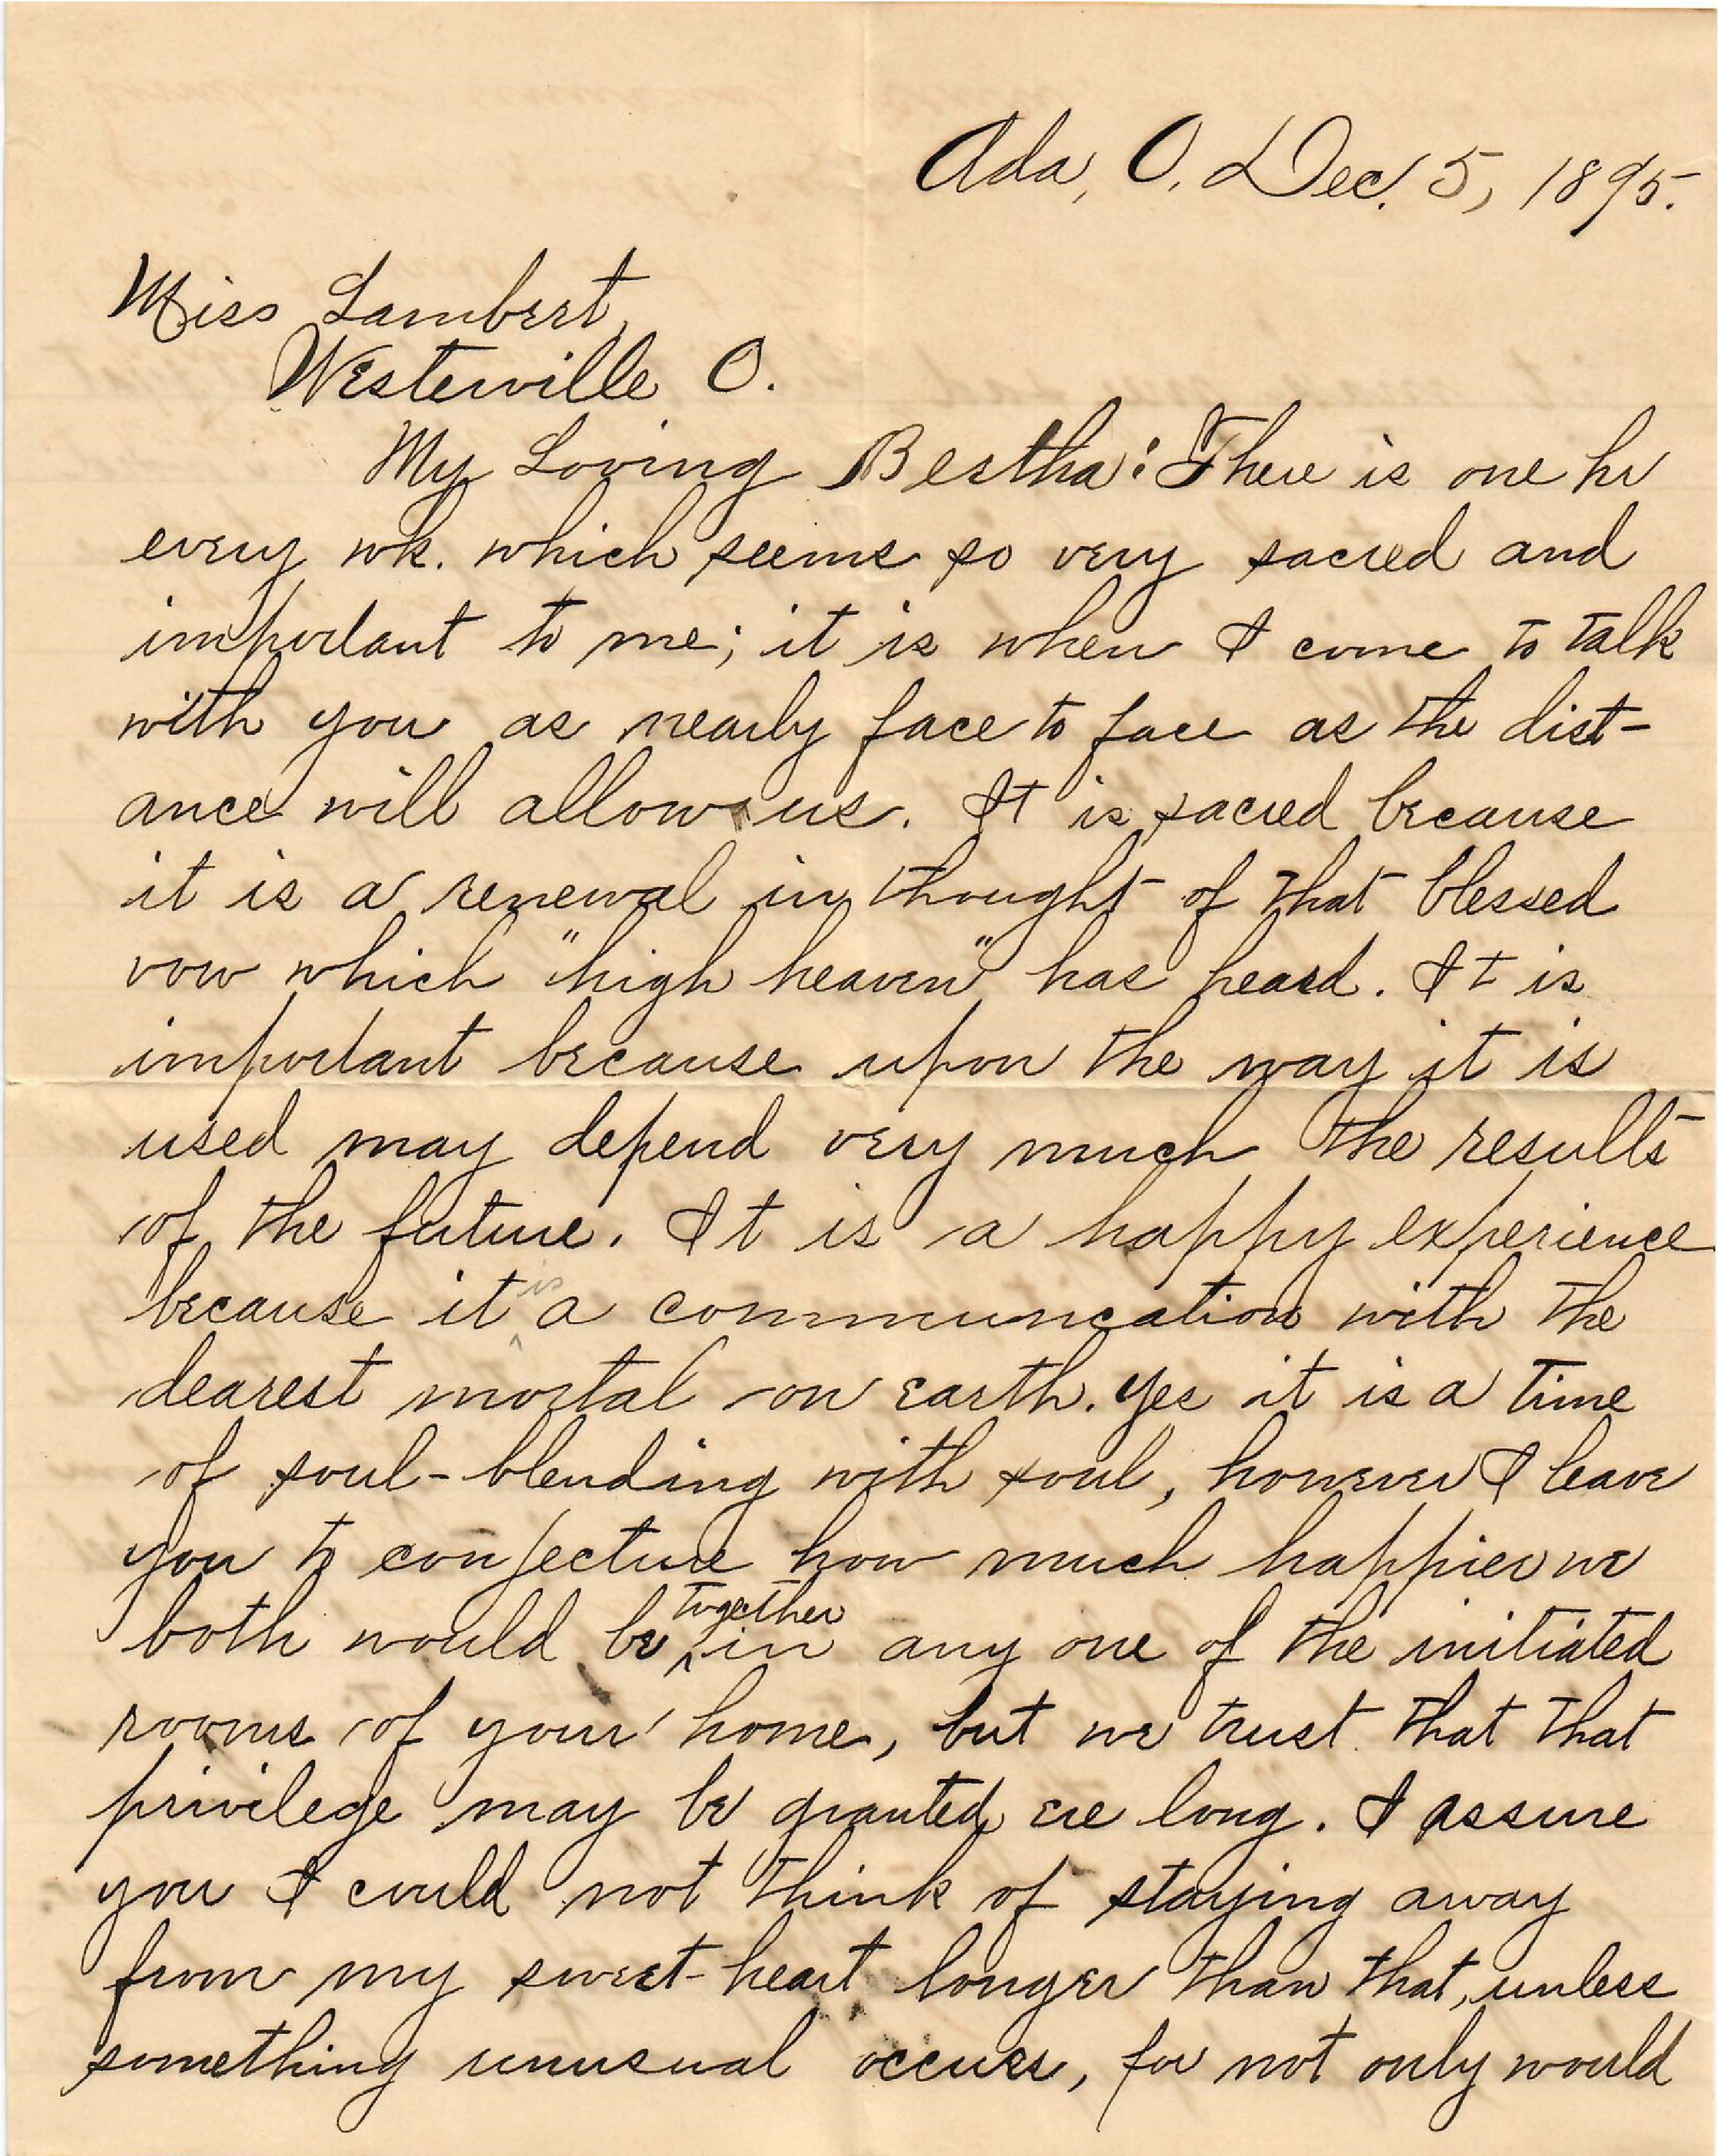 Ada, O. Dec. 5, 1895.
Miss Lambert,
Westerville O.
My Loving Bertha: There is one hr
every wk. which seems so very sacred and
important to me; it is when I come to talk
with you as nearly face to face as the dist-
ance will allow us. It is sacred because
it is a renewal in thought of that blessed
vow which "high heaven" has heard. It is
important because upon the way it is
used may depend very much the results
of the future. It is a happy experience
because it is a communcation with the
dearest mortal on earth. Yes it is a time
of soul-blending with soul, however I leave
you to conjecture how much happier we
both would be together in any one of the initiated
rooms of your home, but we trust that that
privilege may be granted ere long. I assure
you I could not think of staying away
from my sweet-heart longer than that, unless
something unusual occurs, for not only would